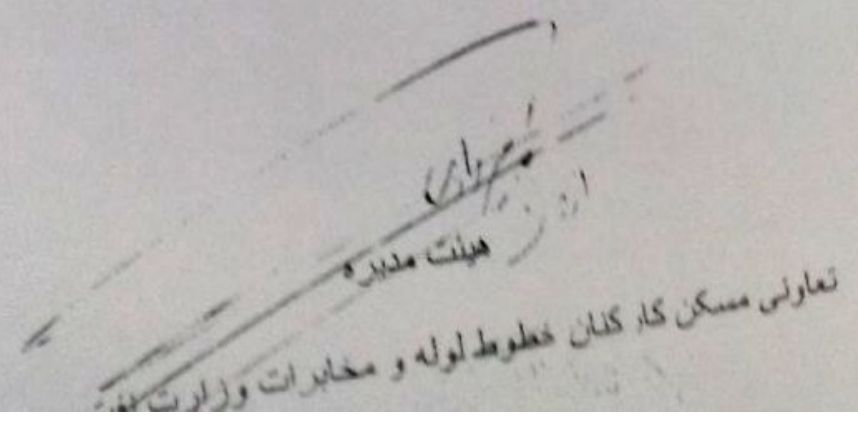 هیئت مدیره
تعاونی مسکن کارکنان خطوط لوله و مخابرات وزارت نفت